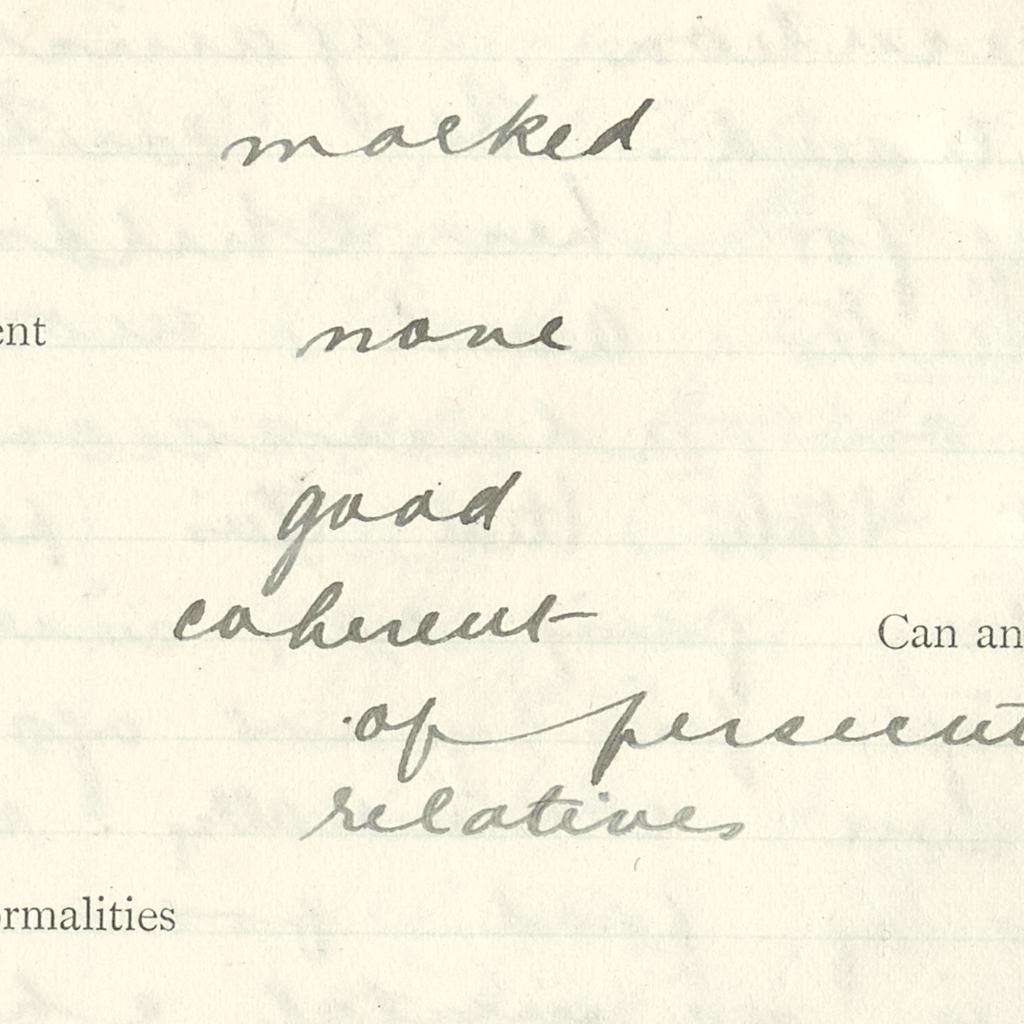 marked
ent none
good
coherent Can an
of persecut
relatives
ormalities